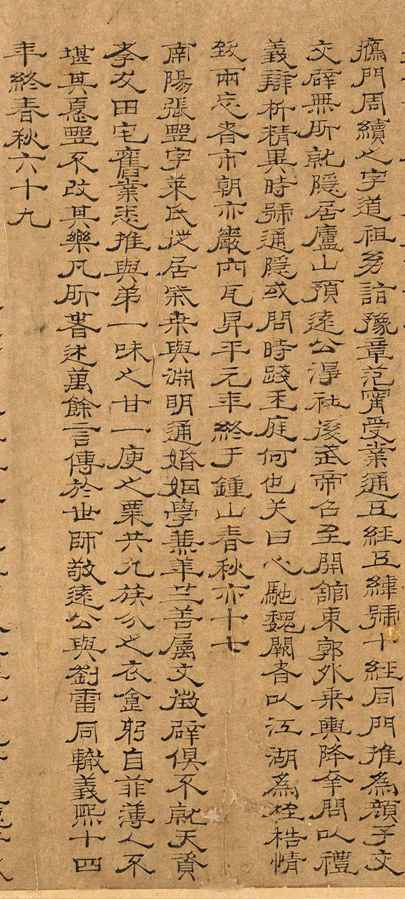 鴈門周續之字道祖幼詣豫章范甯受業通五經五緯號十經同門推為顏子文
交辟無所就隱居廬山預遠公淨社後武帝召至開館東郭外乘輿降幸問以禮
義辯析精異時號通隱或問時踐王庭何也答曰心馳魏闕者以江湖為桎梏情
致兩忘者市朝亦巖穴耳昇平元年終于鍾山春秋六十七
南陽張野字萊民徙居柴桑與淵明通婚姻學兼華梵善屬文徵辟俱不就天資
孝友田宅舊業悉推與弟一味之甘一庾之粟共九族分之衣食躬自菲薄人不
堪其憂野不改其樂凡所著述萬餘言傳於世師敬遠公與劉雷同轍義熙十四
年終春秋六十九